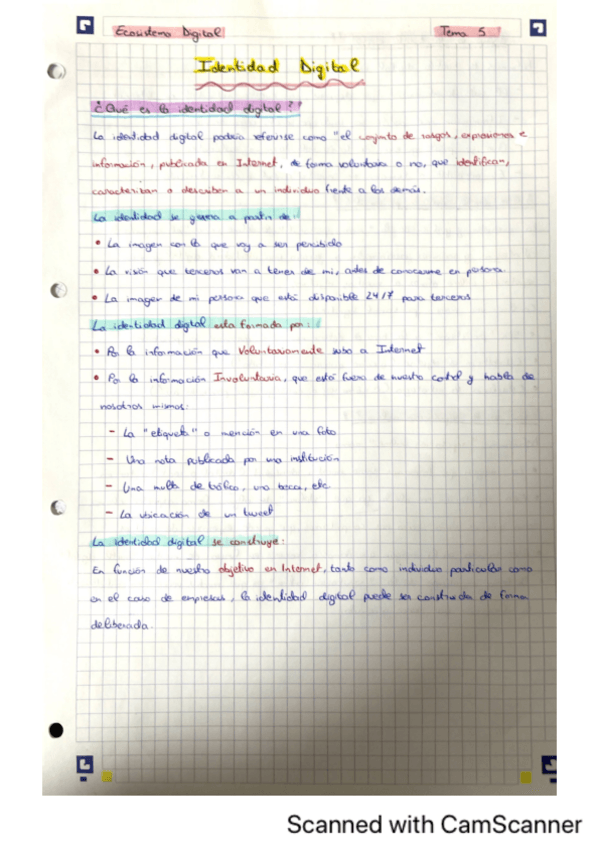 Ecosistema Digital
Tema 5
Identidad Digital
¿Qué es la identidad digital?
La identidad digital podría referirse como "el conjunto de rasgos, expresiones e
información, publicada en Internet, de forma voluntaria o no, que identifican,
caracterizan o describen a un individuo frente a los demás.
La identidad se genera a partir de:
• La imagen con la que voy a ser percibido
• La visión que terceros van a tener de mi, antes de conocerme en persona.
• La imagen de mi persona que está disponible 24/7 para terceros
La identidad digital esta formada por:
• Por la información que Voluntariamente subo a Internet
• Por la información Involuntaria, que está fuera de nuestro control y habla de
nosotros mismos:
- La "etiqueta" o mención en una foto
- Una nota publicada por una institución
- Una multa de tráfico, una beca, etc
- La ubicación de un tweet
La identidad digital se construye:
En función de nuestro objetivo en Internet, tanto como individuo particular como
en el caso de empresas, la identidad digital puede ser construida de forma
deliberada.
Scanned with CamScanner